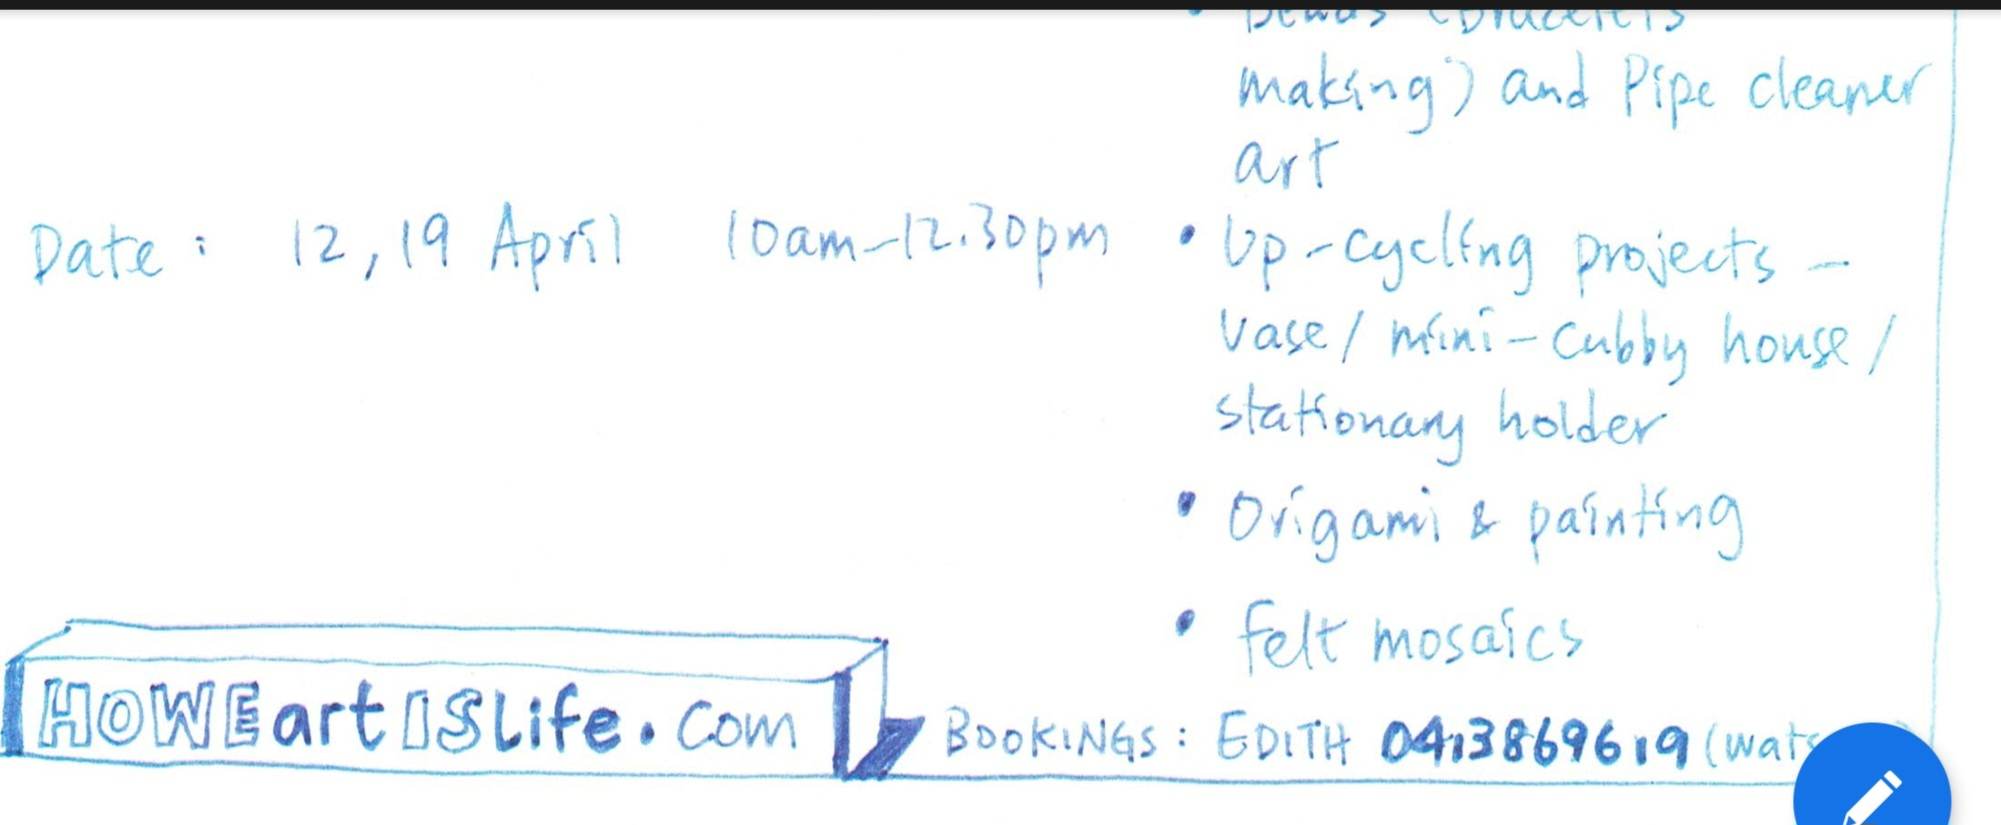 • Beads (Bracelets
making) and Pipe cleaner
art
Date : 12, 19 April 10am-12.30pm
• Up-cycling projects -
Vase / mini-cubby house /
stationary holder
• Origami & painting
• Felt mosaics
HOWEartISLife.com
BOOKINGS : EDITH 0413869619 (wats